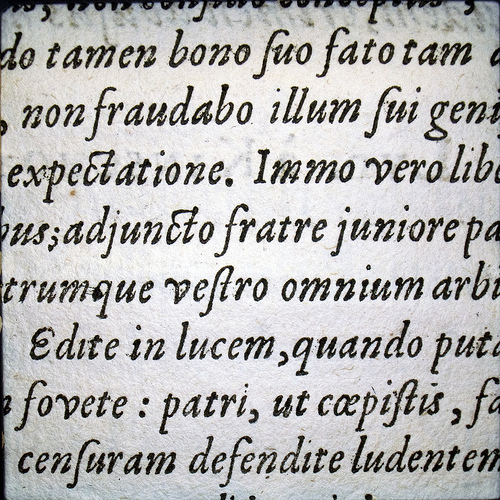 do tamen bono ſuo fato tam
, non fraudabo illum ſui geni
expectatione. Immo vero libe
bus; adjuncto fratre juniore pa
trumque veſtro omnium arbi
Edite in lucem, quando puta
fovete : patri, ut cœpiſtis, fa
cenſuram defendite ludentem